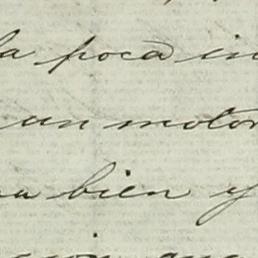 la poca in
un motor
na bien y
que